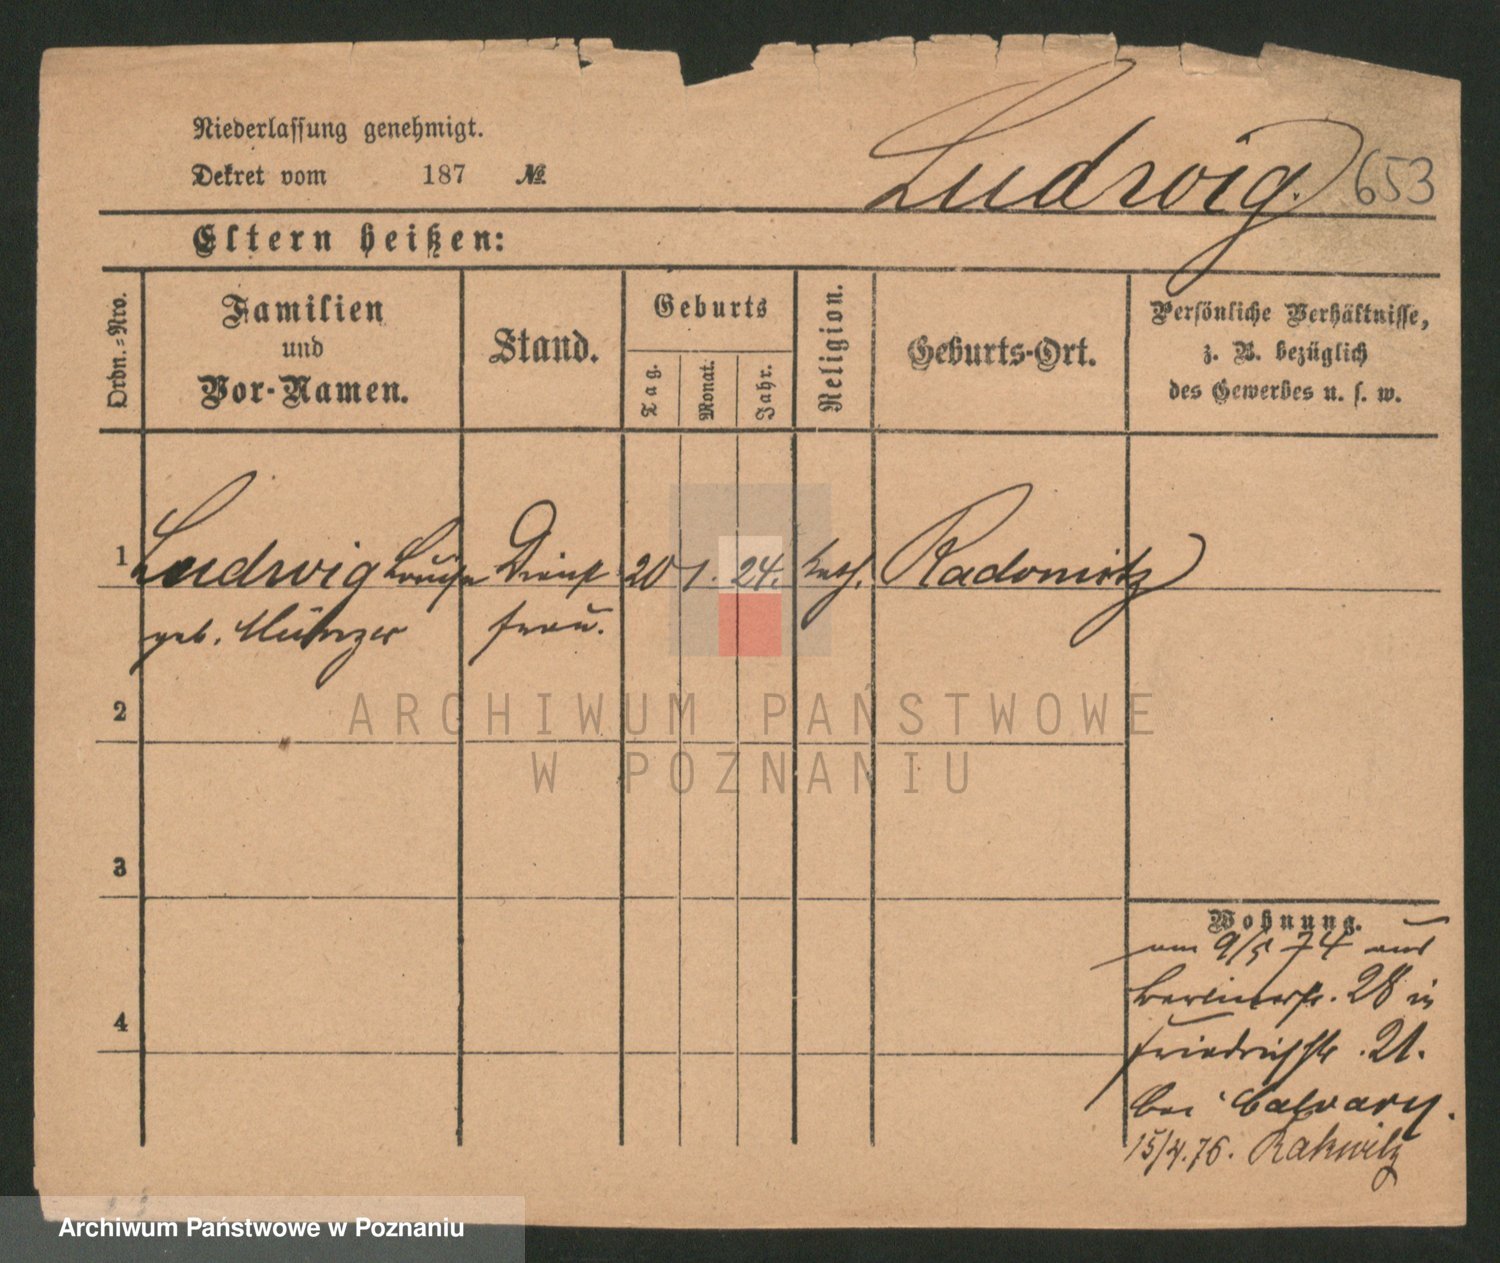 Niederlassung genehmigt.
Dekret vom 187 №
Ludwig. 653
Eltern heißen:
Ordn.=Nro.
Familien
und
Vor-Namen.
Stand.
Geburts
Tag.
Monat.
Jahr.
Religion.
Geburts-Ort.
Persönliche Verhältnisse,
z. B. bezüglich
des Gewerbes u. s. w.
1 Ludwig Louise Dienst 20 1. 24. kath. Radomitz
geb. Münzer frau.
2
3
4
Wohnung.
am 9/5 74 aus
Berlinerstr. 28 in
Friedrichstr. 21.
bei Calvary.
15/4.76. Rakwitz
ARCHIWUM PAŃSTWOWE
W POZNANIU
Archiwum Państwowe w Poznaniu